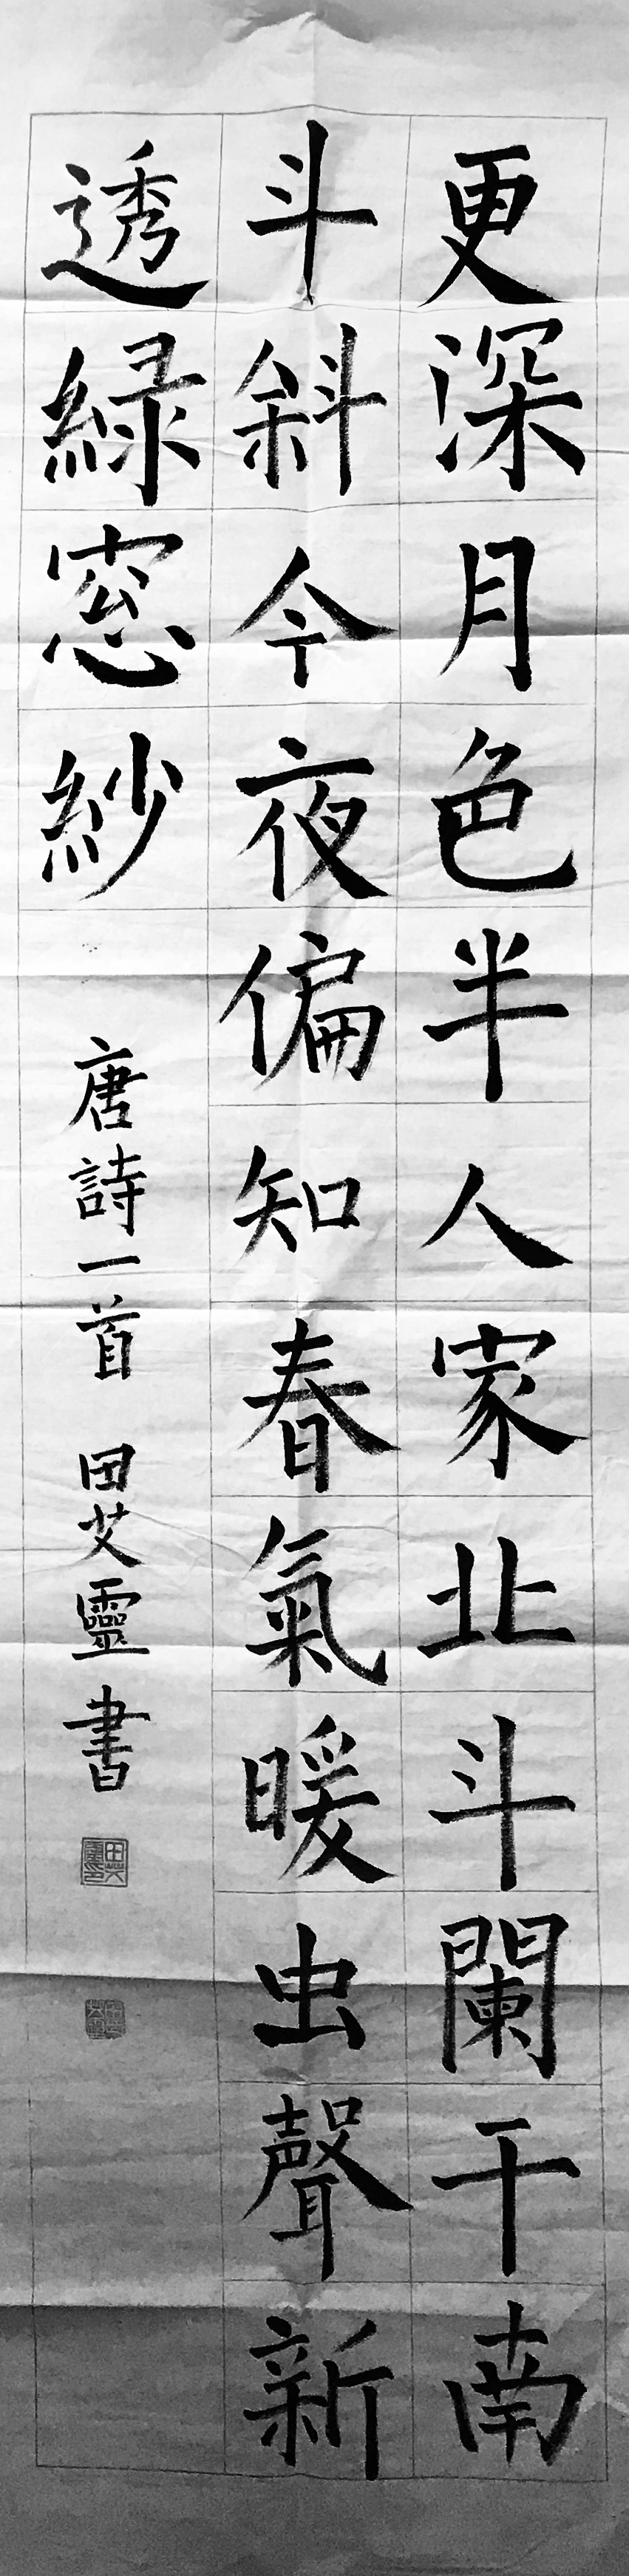 更深月色半人家北斗闌干南
斗斜今夜偏知春氣暖虫聲新
透綠窓紗
唐詩一首 田艾靈書